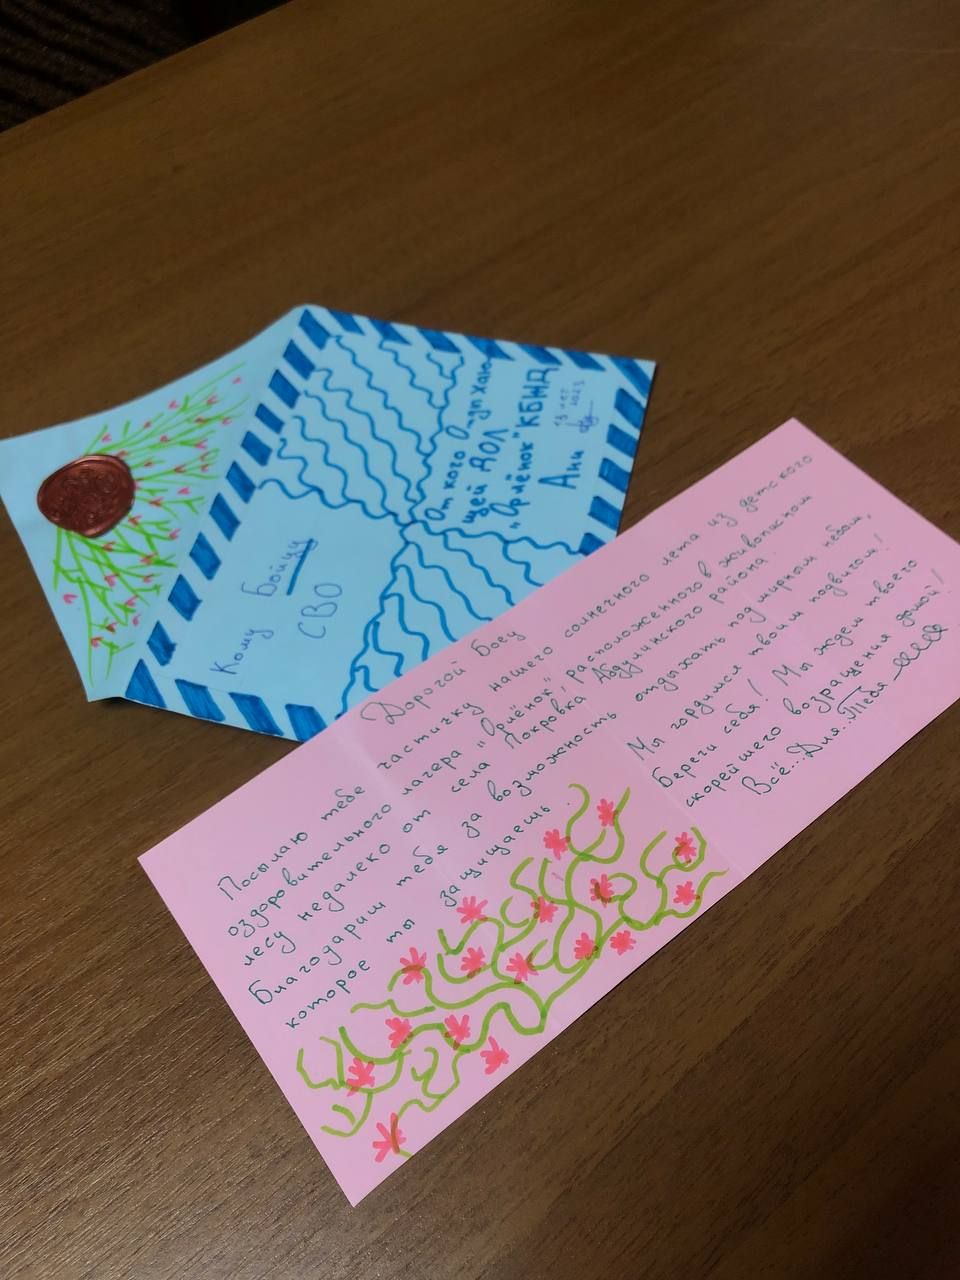 Кому Бойцу
СВО
От кого Отдыхаю
щей ДОЛ
„Орлёнок" КБЖД
Ани
13 лет
Дорогой Боец
Посылаю тебе частичку нашего солнечного лета из детского
оздоровительного лагеря „Орлёнок", расположенного в живописном
лесу недалеко от села "Покровка", Абдулинского района.
Благодариш тебя за возможность отдыхать под мирным небом,
которое ты защищаешь. Мы гордимся твоим подвигом!
Береги себя! Мы ждем твоего
скорейшего возвращения домой!
Всё...Для...Тебя